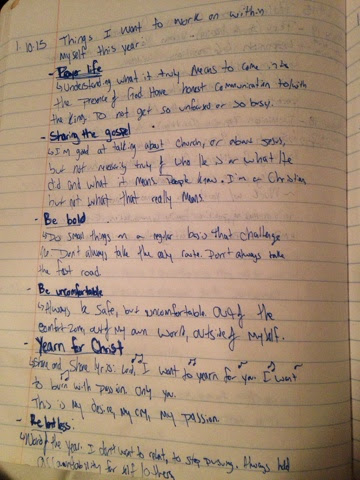 1.10.15 Things I want to work on within
myself this year:
- Prayer life
↳ Understanding what it truly means to come into
the presence of God. Have honest communication to/with
the King. Do not get so unfocused or so busy.
- Sharing the gospel
↳ I'm good at talking about church, or Jesus,
but not necessarily truly who He is or what He
did and what it means. People know I'm a Christian
but not what that really means.
- Be bold
↳ Do small things on a regular basis that challenge
me. Don't always take the easy route. Don't always take
the fast road.
- Be uncomfortable
↳ Always be safe, but uncomfortable. Out of the
comfort zone, out of my own world, outside of myself.
- Yearn for Christ
↳ Shane and Shane lyrics: Lord, I want to yearn for you I want
to burn with passion only you.
This is my desire, my cry, my passion.
- Relentless:
↳ Word of the year. I don't want to relent, to stop pursuing. Always hold
accountability for self &